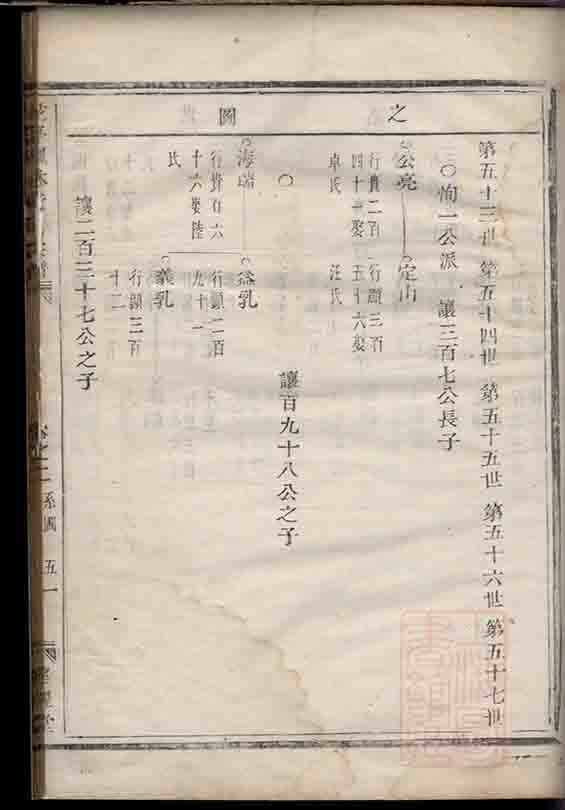 之
圖
第五十三世 第五十四世 第五十五世 第五十六世 第五十七世
○恂一公派 讓三百七公長子
公亮
行費二百
四十一娶
卓氏
定山
行顯三百
五十六娶
汪氏
讓百九十八公之子
海瑞
行費百六
十六娶陸
氏
益乳
行顯二百
九十一
義乳
行顯三百
十二
讓二百三十七公之子
系圖 五一